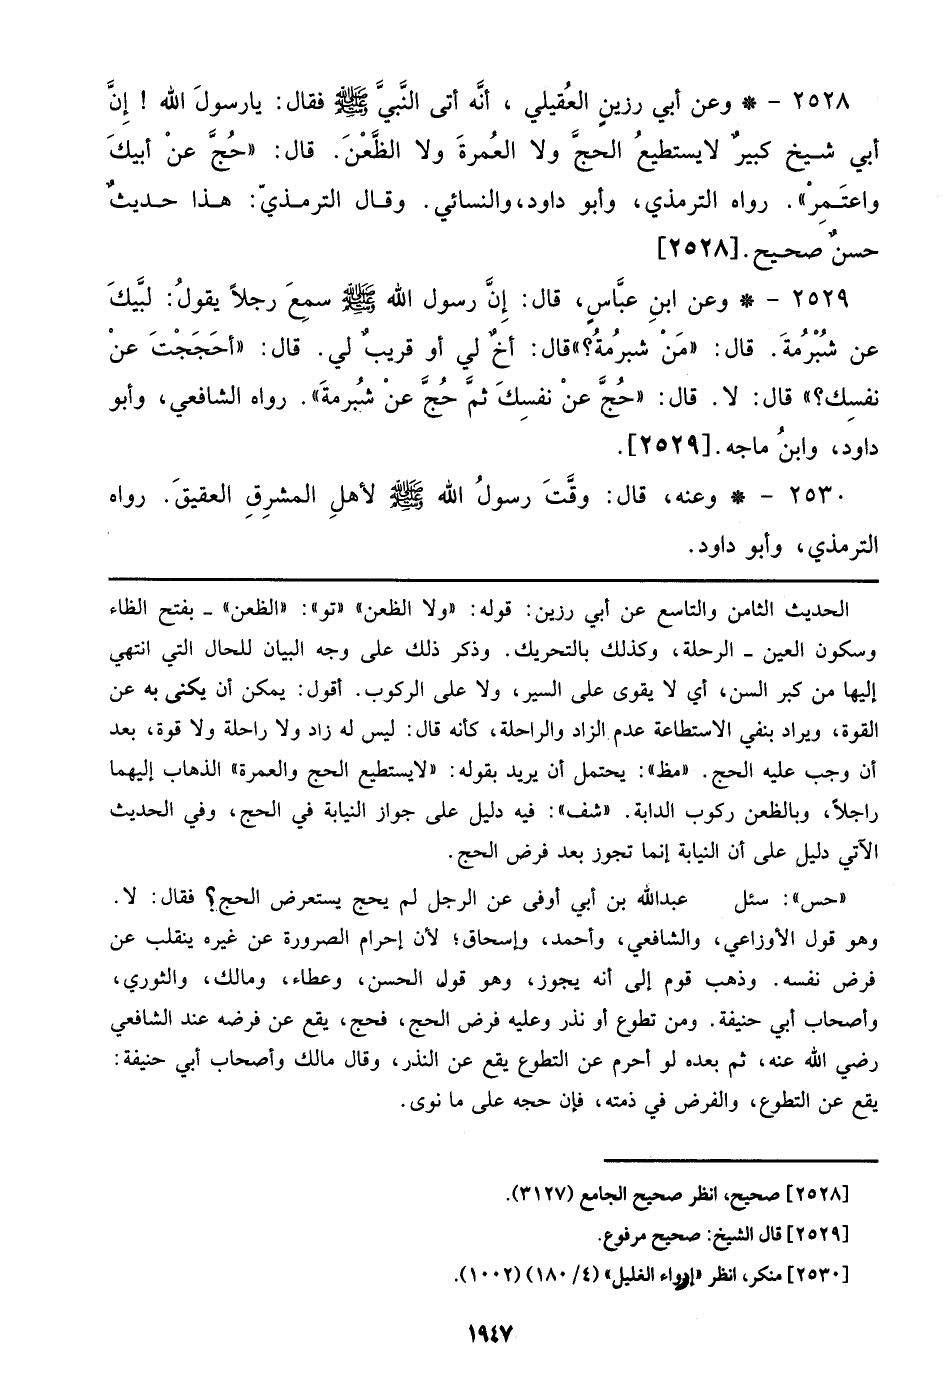 ٢٥٢٨ – * وعن أبي رزينٍ العُقيلي ، أنَّه أتى النَّبيَّ ﷺ فقال: يارسولَ الله ! إِنَّ
أبي شـيخ كبيرٌ لايستطيعُ الحجَّ ولا العُمرةَ ولا الظَّعْنَ. قال: «حُجَّ عنْ أبيكَ
واعتَـمِرْ». رواه الترمذي، وأبو داود،والنسائي. وقـال الترمـذيّ: هـذا حـديثٌ
حسنٌ صحيح.[٢٥٢٨]
٢٥٢٩ – * وعن ابنِ عبَّاسٍ، قال: إِنَّ رسول الله ﷺ سمِعَ رجلاً يقولُ: لبَّيكَ
عن شُبْرُمةَ. قال: «مَنْ شبرُمةُ؟»قال: أخٌ لي أو قريبٌ لي. قال: «أحَجَجْتَ عنْ
نفسِك؟» قال: لا. قال: «حُجَّ عنْ نفسِكَ ثمَّ حُجَّ عنْ شُبرمةَ». رواه الشافعي، وأبو
داود، وابنُ ماجه.[٢٥٢٩].
٢٥٣٠ – * وعنه، قال: وقَّتَ رسولُ الله ﷺ لأهلِ المشرِقِ العقيقَ. رواه
الترمذي، وأبو داود.
الحديث الثامن والتاسع عن أبي رزين: قوله: «ولا الظعن» «تو»: «الظعن» ـ بفتح الظاء
وسكون العين ـ الرحلة، وكذلك بالتحريك. وذكر ذلك على وجه البيان للحال التي انتهي
إليها من كبر السن، أي لا يقوى على السير، ولا على الركوب. أقول: يمكن أن يكنى به عن
القوة، ويراد بنفي الاستطاعة عدم الزاد والراحلة، كأنه قال: ليس له زاد ولا راحلة ولا قوة، بعد
أن وجب عليه الحج. «مظ»: يحتمل أن يريد بقوله: «لايستطيع الحج والعمرة» الذهاب إليهما
راجلاً، وبالظعن ركوب الدابة. «شف»: فيه دليل على جواز النيابة في الحج، وفي الحديث
الآتي دليل على أن النيابة إنما تجوز بعد فرض الحج.
«حس»: سئل عبدالله بن أبي أوفى عن الرجل لم يحج يستعرض الحج؟ فقال: لا.
وهو قول الأوزاعي، والشافعي، وأحمد، وإسحاق؛ لأن إحرام الصرورة عن غيره ينقلب عن
فرض نفسه. وذهب قوم إلى أنه يجوز، وهو قول الحسن، وعطاء، ومالك، والثوري،
وأصحاب أبي حنيفة. ومن تطوع أو نذر وعليه فرض الحج، فحج، يقع عن فرضه عند الشافعي
رضي الله عنه، ثم بعده لو أحرم عن التطوع يقع عن النذر، وقال مالك وأصحاب أبي حنيفة:
يقع عن التطوع، والفرض في ذمته، فإن حجه على ما نوى.
[٢٥٢٨] صحيح، انظر صحيح الجامع (٣١٢٧).
[٢٥٢٩] قال الشيخ: صحيح مرفوع.
[٢٥٣٠] منكر، انظر «إرواء الغليل» (٤/ ١٨٠) (١٠٠٢).
١٩٤٧